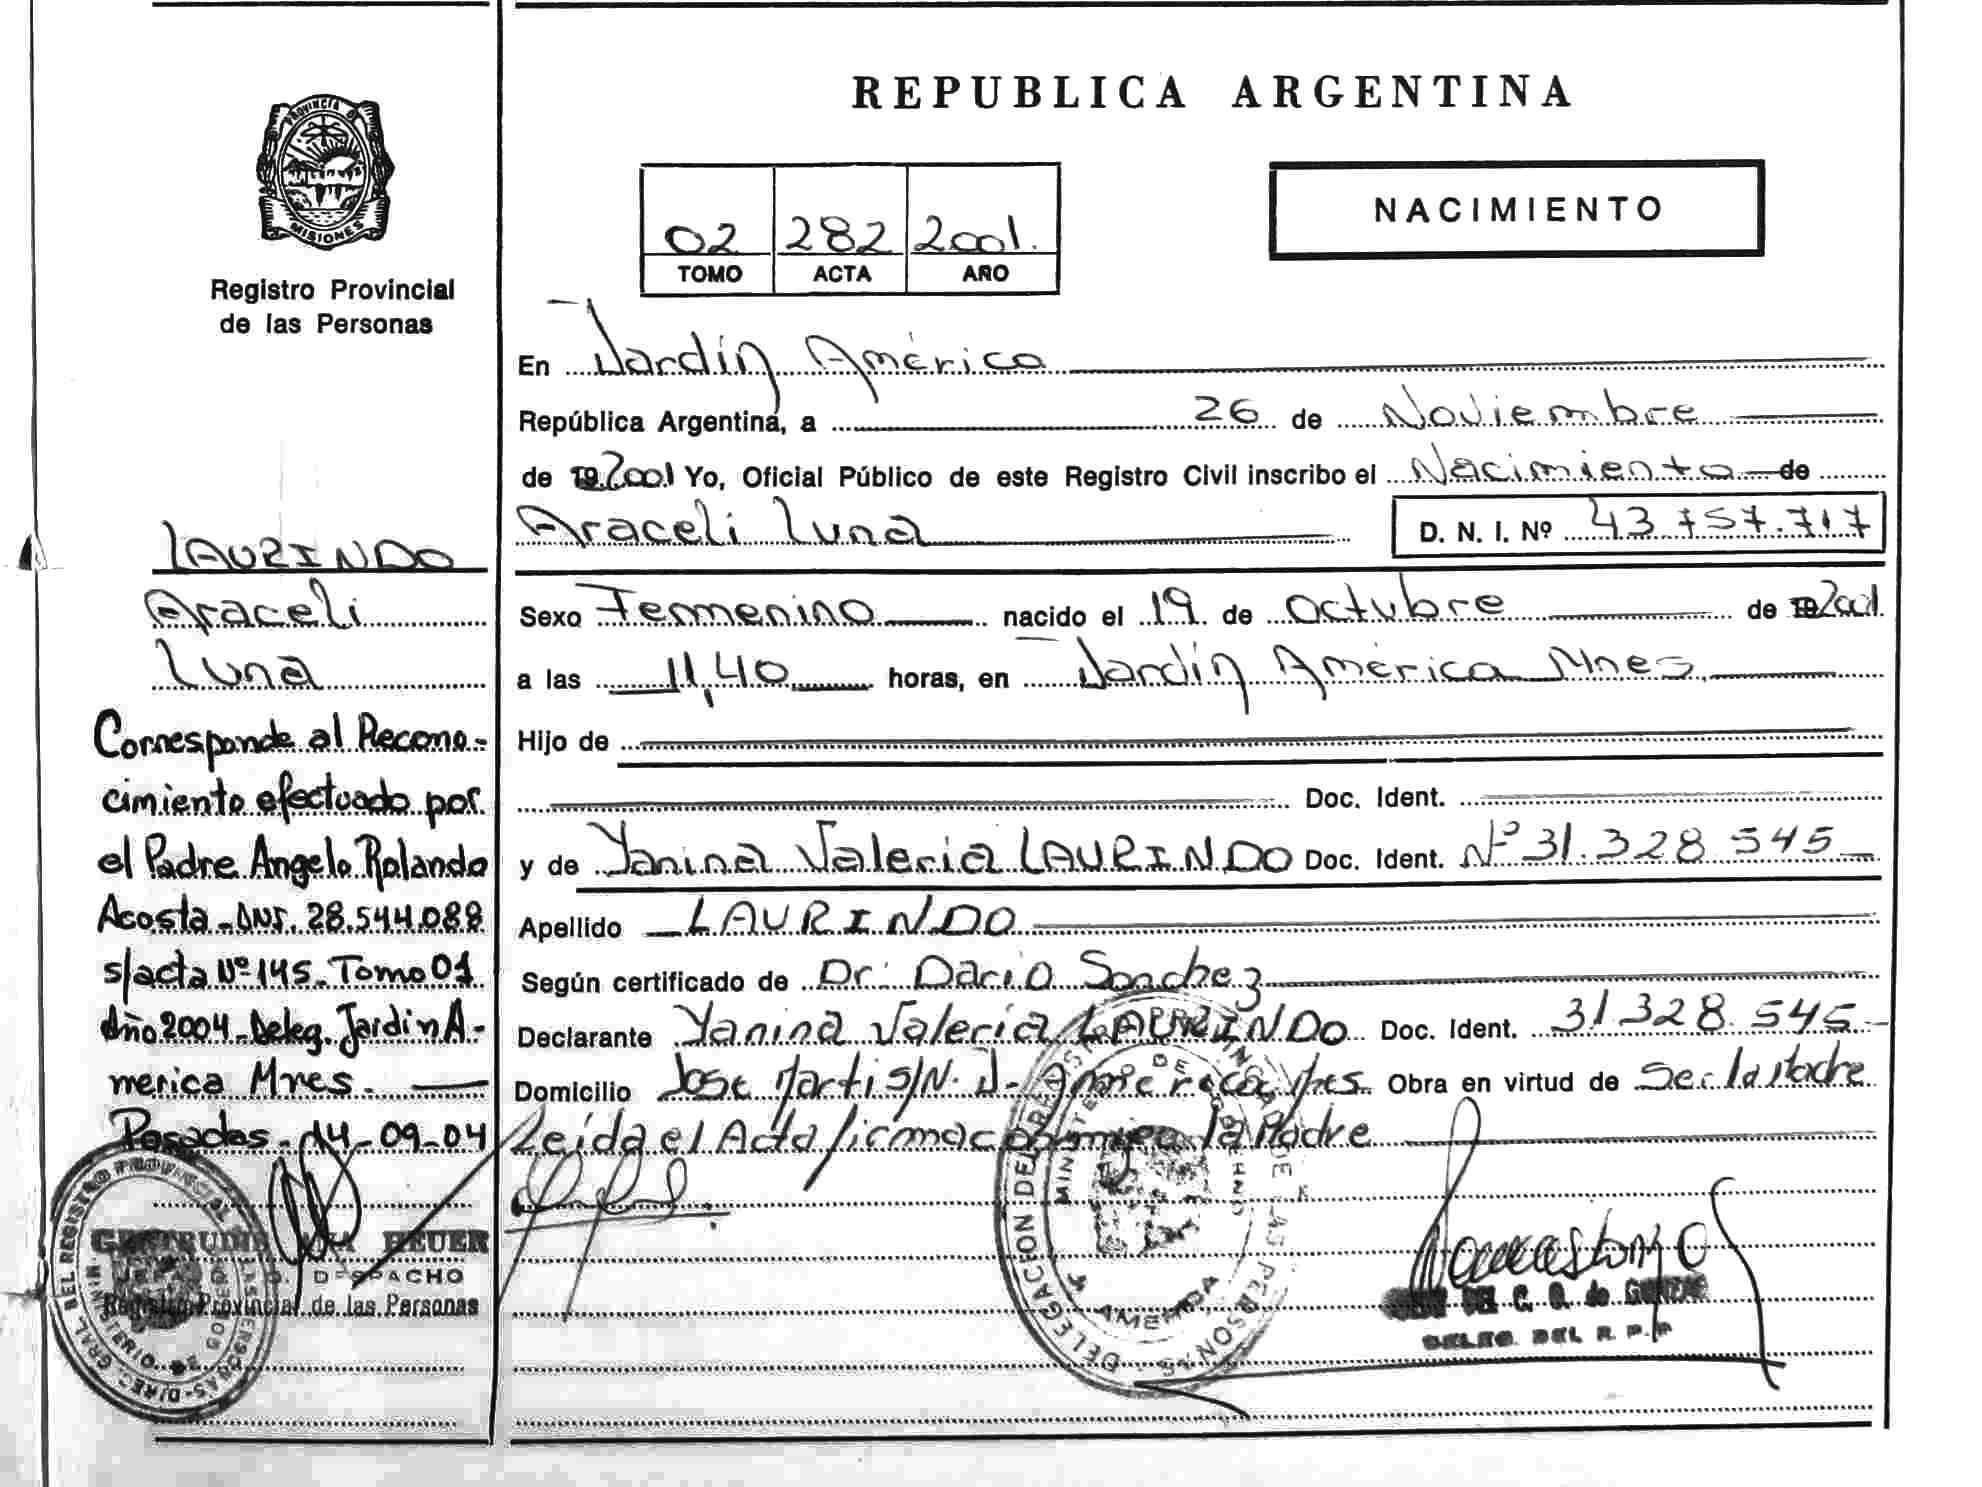 REPUBLICA ARGENTINA
PROVINCIA DE
MISIONES
Registro Provincial
de las Personas
02 282 2001.
TOMO ACTA AÑO
NACIMIENTO
En Jardín América
República Argentina, a 26 de Noviembre
de 19 2001 Yo, Oficial Público de este Registro Civil inscribo el Nacimiento de
Araceli Luna D. N. I. Nº 43.757.717
Sexo Femenino nacido el 19 de Octubre de 19 2001
a las 11,40 horas, en Jardín América Mnes.
Hijo de
Doc. Ident.
y de Yanina Valeria LAURINDO Doc. Ident. Nº 31.328.545
Apellido LAURINDO
Según certificado de Dr. Dario Sanchez
Declarante Yanina Valeria LAURINDO Doc. Ident. 31.328.545
Domicilio Jose Marti s/N. J. America Mnes. Obra en virtud de Ser la Madre
Leída el Acta firma conmigo la Madre
LAURINDO
Araceli
Luna
Corresponde al Recono-
cimiento efectuado por
el Padre Angelo Rolando
Acosta - DNI. 28.544.088
s/acta Nº 145. Tomo 01
Año 2004 - Deleg. Jardin A-
merica Mnes.
Posadas - 14-09-04
HEUER
DESPACHO
Registro Provincial de las Personas
DELEGACION DEL REGISTRO PROVINCIAL DE LAS PERSONAS
MINISTERIO DE GOBIERNO
AMERICA
DELEG. DEL R. P. P.